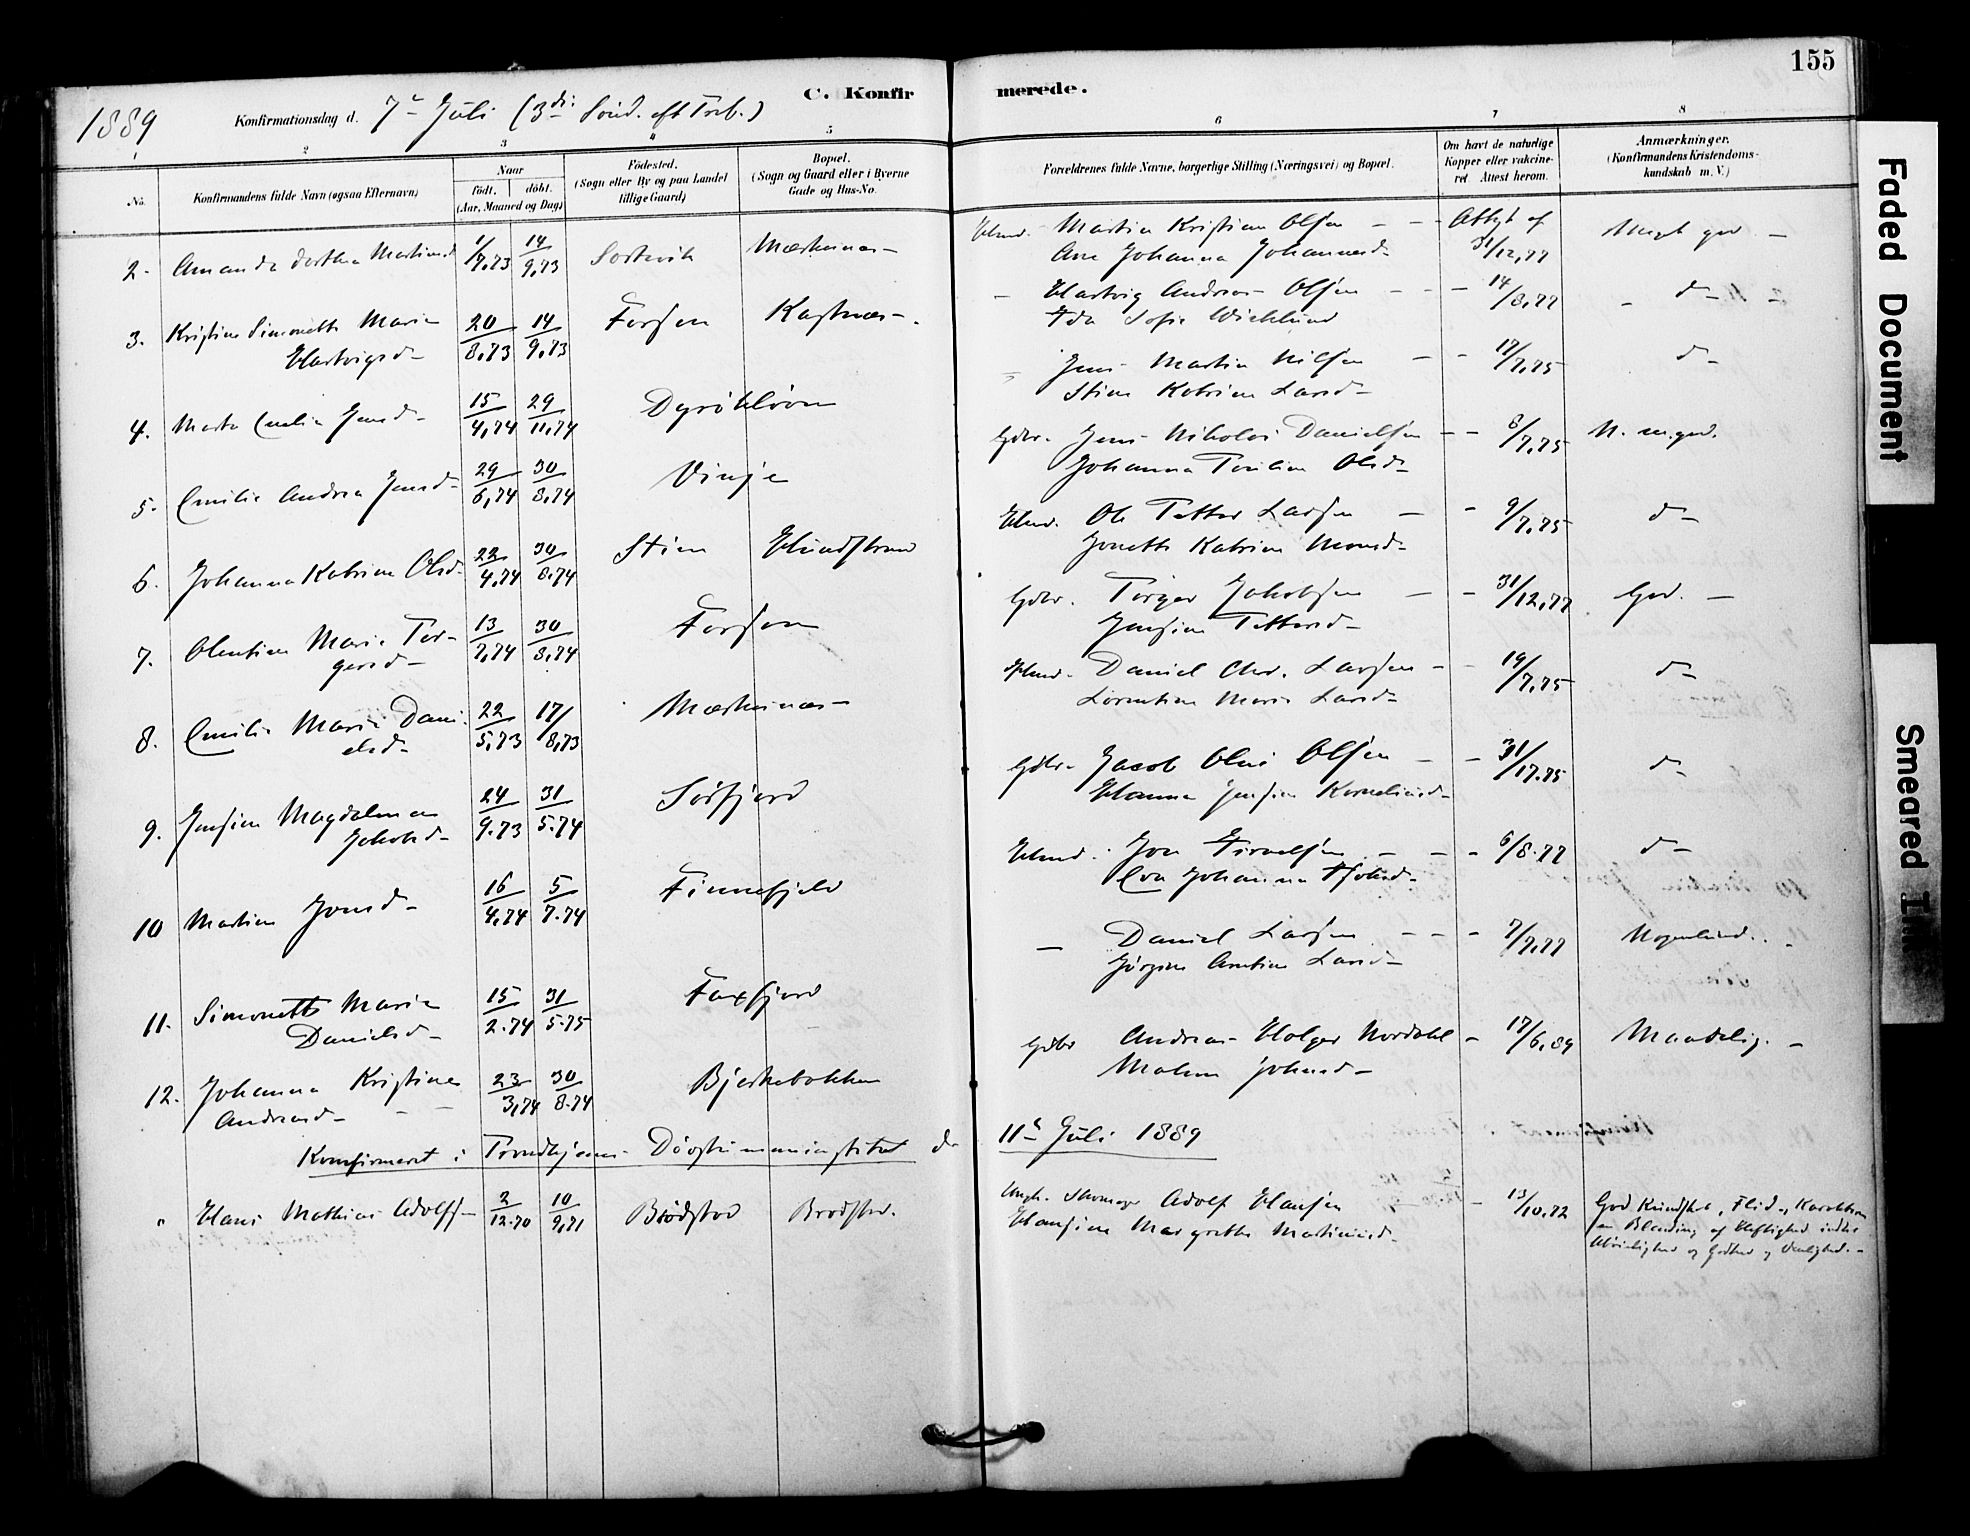 155
C. Konfirmerede.
1889 Konfirmationsdag d. 7de Juli (3die Sønd. eft Treb.)
1 2 3 4 5 6 7 8
No.
Konfirmandens fulde Navn (ogsaa Efternavn)
Naar
født, døbt.
(Aar, Maaned og Dag)
Fødested.
(Sogn eller By og paa Landet tillige Gaard)
Bopæl.
(Sogn og Gaard eller i Byerne Gade og Hus-No.
Forældrenes fulde Navne, borgerlige Stilling (Næringsvei) og Bopæl.
Om havt de naturlige Kopper eller vaccineret Attest herom.
Anmærkninger.
(Konfirmandens Kristendomskundskab m. V.)
2. Amanda Dorthea Martinsd 1/7.73 14/9.73 Sortevik Mærkenæs- Hmd. Martin Kristian Olsen - - Attest af
Ane Johanna Johannesd- 31/12,77 Meget god -
3. Kristine Simonette Marie 20/8,73 14/9,73 Forsøen Kastnæs-. - Hartvig Andreas Olsen - - - 14/8,77 - d- -
Hartvigsd- Ida Sofie Wicklund
4. Marta Emelie Jensd- 15/4,74 29/11,74 Dyrøkloven - Jens Martin Nilsen - - 17/7,75 d-
Stine Katrine Larsd-
5. Emilie Andrea Jensd- 29/6,74 30/8,74 Vinje Gdbr. Jens Nikolai Danielsen - - 8/7,75 N. m.god.
Johanna Olsd-
6. Johanna Katrine Olsd. 22/4,74 30/8,74 Stien Hundstrand Hmd. Ole Petter Larsen - - 9/7,75 d-
Jonette Katrine Monsd-
7. Olentine Marie Tor- 13/7,74 30/8,74 Forsøen Gdbr. Torger Jakobsen - - 31/12,77. God. -
gersd- Jensine Pettersd-
8. Emilie Marie Dani- 22/5,73 17/8,73 Mærkenæs- Hmd. Daniel Chr. Larsen - - 19/7,75 d-
elsd- Lorentine Marie Larsd-
9. Jensine Magdalena 24/9.73 31/5.74 Sørfjord Gdbr. Jacob Olai Olsen - - 31/17.75 d-
Jakobsd- Hanna Jensine Korneliusd-
10 Martine Jonsd- 16/4,74 5/7.74 Finnefjeld Hmd. Jon - - - 6/8.77 d-
Eva Johanna
11. Simonette Marie 15/2.74 31/5.75 Faxfjord - Daniel Larsen - - - 7/7,77 Nogenlund. . -
Danielsd- Jørgine Arntine Larsd-
12. Johanna Kristine 23/3,74 30/8.74 Bjerkebakken Gdbr Andreas Holger Nordahl - 17/6,89 Maadelig. -
Andreasd- - - Malene Johnsd-
Konfirmeret i Trondhjems Døvstummeinstitut d. 11te Juli 1889
" Hans Mathias Adolfs- 2/12.70 10/9,71 Brødstad Brødstad. Ungk. Skomager Adolf Hansen - 13/10.72 God Kundskab, Flid-, Karakteren
Hansine Margrethe Martinusd- en Blanding af Heftighed
og Godhed og Venlighed.-
Faded Document
Smeared Ink